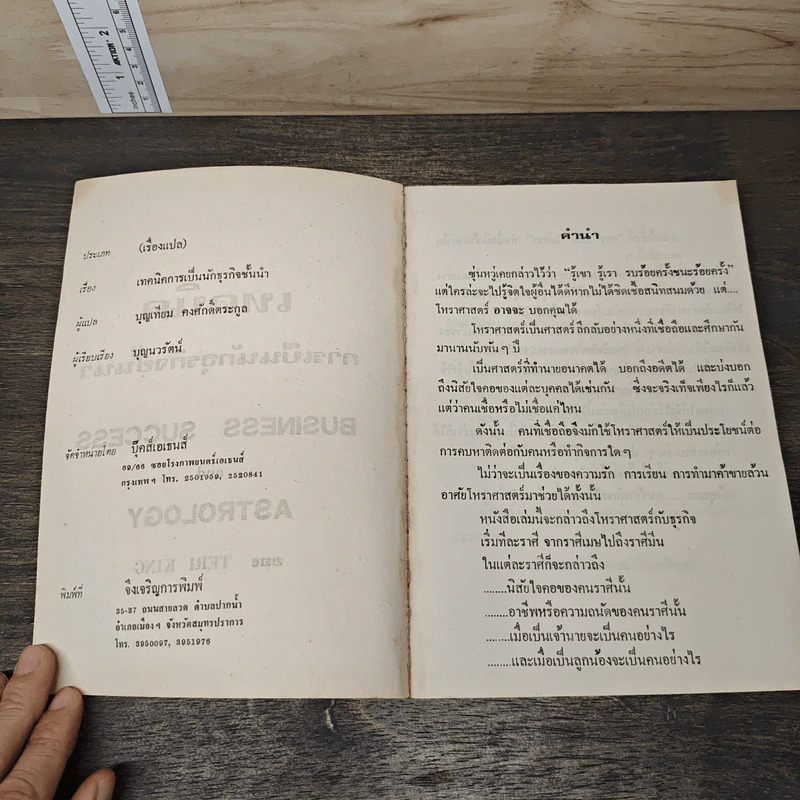 ประเภท (เรื่องแปล)
เรื่อง เทคนิคการเป็นนักธุรกิจชั้นนำ
ผู้แปล บุญเทียม คงศักดิ์ตระกูล
ผู้เรียบเรียง บุญนวรัตน์
จัดจำหน่ายโดย บุ๊คส์เอเธนส์
69/66 ซอยโรงภาพยนตร์เอเธนส์
กรุงเทพฯ โทร. 2501959, 2520841
พิมพ์ที่ จึงเจริญการพิมพ์
35-37 ถนนสายลวด ตำบลปากน้ำ
อำเภอเมืองฯ จังหวัดสมุทรปราการ
โทร. 3950097, 3951976
คำนำ
ซุนหวู่เคยกล่าวไว้ว่า “รู้เขา รู้เรา รบร้อยครั้งชนะร้อยครั้ง”
แต่ใครล่ะจะไปรู้จิตใจผู้อื่นได้ดีหากไม่ได้ชิดเชื้อสนิทสนมด้วย แต่....
โหราศาสตร์ อาจจะ บอกคุณได้
โหราศาสตร์เป็นศาสตร์ ลึกลับอย่างหนึ่งที่เชื่อถือและศึกษากัน
มานานนับพันๆ ปี
เป็นศาสตร์ที่ทำนายอนาคตได้ บอกถึงอดีตได้ และบ่งบอก
ถึงนิสัยใจคอของแต่ละบุคคลได้เช่นกัน ซึ่งจะจริงเท็จเพียงไรก็แล้ว
แต่ว่าคนเชื่อหรือไม่เชื่อแค่ไหน
ดังนั้น คนที่เชื่อถือจึงมักใช้โหราศาสตร์ให้เป็นประโยชน์ต่อ
การคบหาติดต่อกับคนหรือทำกิจการใดๆ
ไม่ว่าจะเป็นเรื่องของความรัก การเรียน การทำมาค้าขายล้วน
อาศัยโหราศาสตร์มาช่วยได้ทั้งนั้น
หนังสือเล่มนี้จะกล่าวถึงโหราศาสตร์กับธุรกิจ
เริ่มทีละราศี จากราศีเมษไปถึงราศีมีน
ในแต่ละราศีก็จะกล่าวถึง
........นิสัยใจคอของคนราศีนั้น
........อาชีพหรือความถนัดของคนราศีนั้น
........เมื่อเป็นเจ้านายจะเป็นคนอย่างไร
........และเมื่อเป็นลูกน้องจะเป็นคนอย่างไร